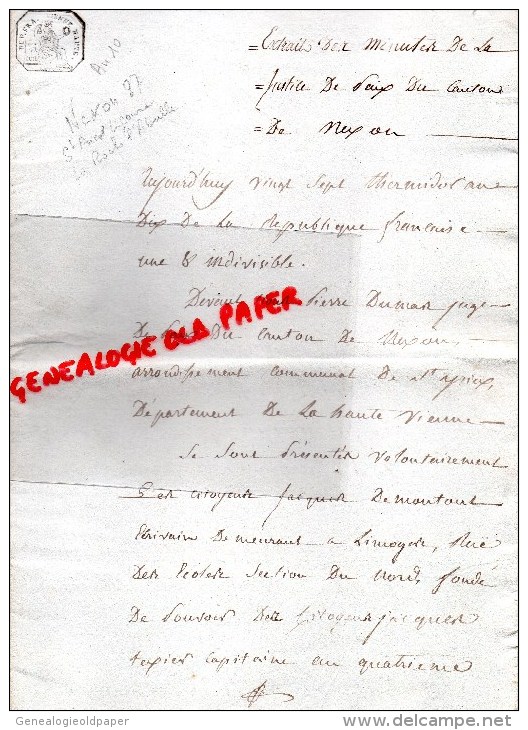 REP. FRA.
An 10
Nexon 87
St Priest Ligoure
La Roche l'Abeille
= Extraits Des Minutes De La
= Justice De Paix Du Canton
= De Nexon
Aujourd'huy vingt sept thermidor an
Dix De La Republique francaise
une & indivisible.
Devant nous Pierre Dumas juge
De Paix Du Canton De Nexon,
arrondissement communal De St yrieix,
Département De La haute vienne
se sont Présentés volontairement
Les citoyens Jacques Demontout
Ecrivain Demeurant a Limoges, Ruë
Des Ecoles section Du Nord, fondé
De Pouvoir Des Citoyens jacques
texier capitaine au quatrieme
GENEALOGIE OLD PAPER
Genealogieoldpaper
delcampe.net